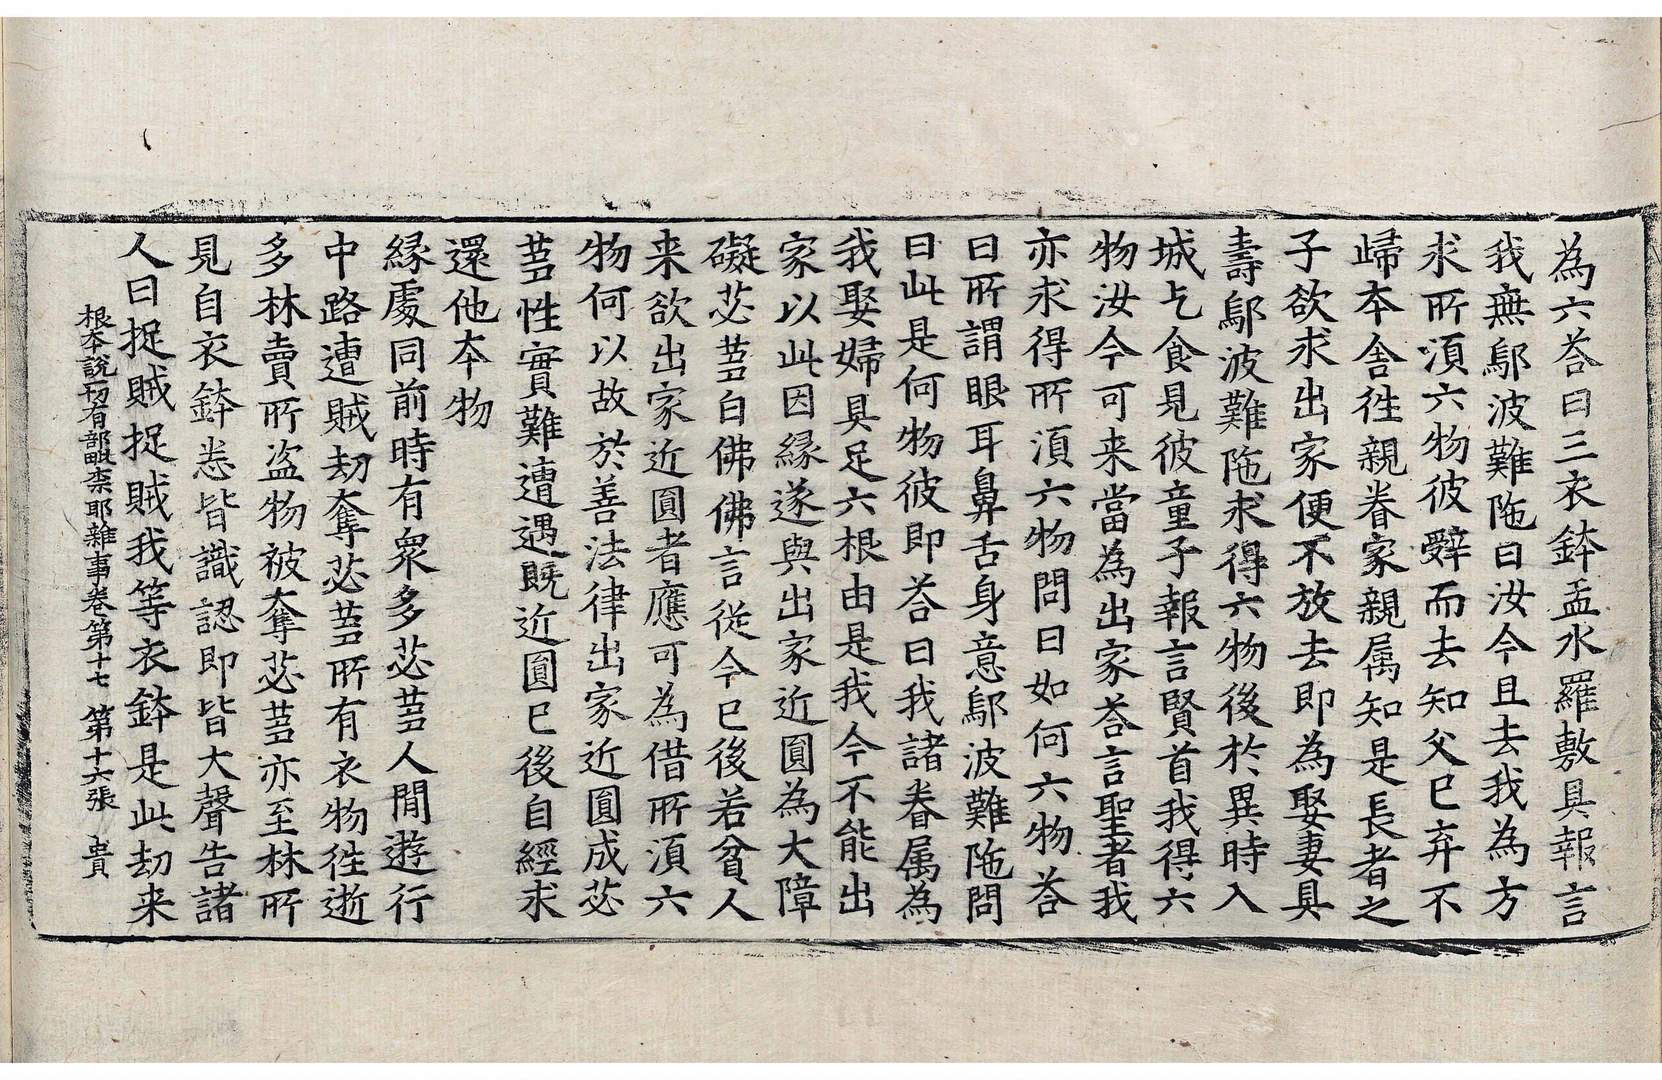 為六荅曰三衣鉢盂水羅敷具報言
我無鄔波難陁曰汝今且去我為方
求所湏六物彼辭而去知父已弃不
歸本舍徃親眷家親属知是長者之
子欲求出家便不放去即為娶妻具
壽鄔波難陁求得六物後於異時入
城乞食見彼童子報言賢首我得六
物汝今可来當為出家荅言聖者我
亦求得所湏六物問曰如何六物荅
曰所謂眼耳鼻舌身意鄔波難陁問
曰此是何物彼即荅曰我諸眷属為
我娶婦具足六根由是我今不能出
家以此因緣遂與出家近圓為大障
礙苾蒭白佛佛言從今已後若貧人
来欲出家近圓者應可為借所湏六
物何以故於善法律出家近圓成苾
蒭性實難遭遇既近圓已後自經求
還他本物
緣處同前時有衆多苾蒭人閒遊行
中路遭賊劫奪苾蒭所有衣物徃逝
多林賣所盗物被奪苾蒭亦至林所
見自衣鉢悉皆識認即皆大聲告諸
人曰捉賊捉賊我等衣鉢是此劫来
根本說一切有部毗柰耶雜事卷第十七 第十六張 貴